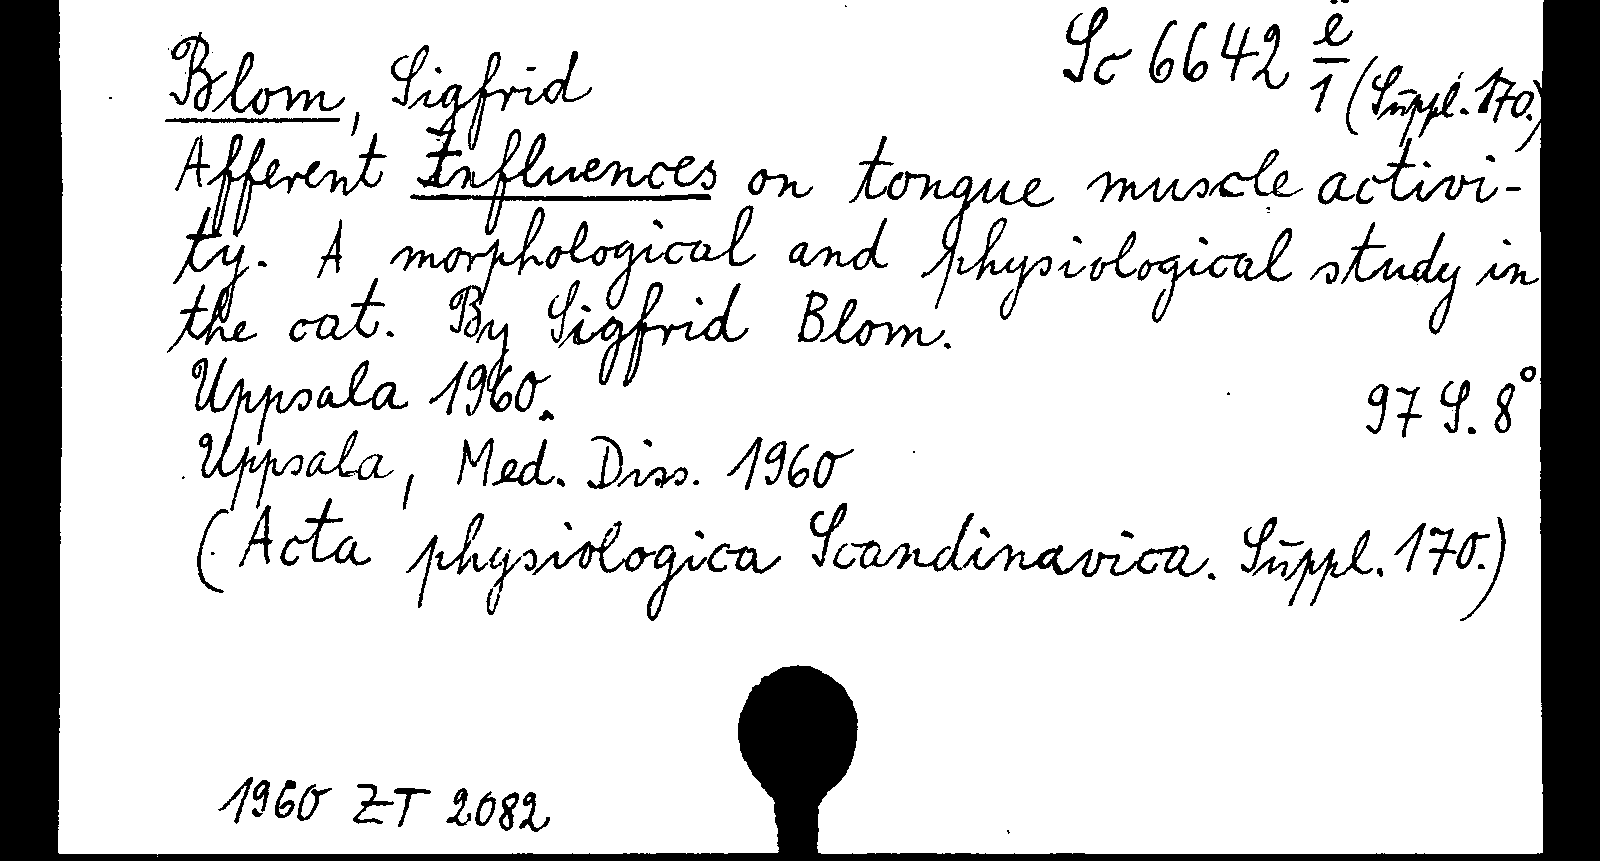 Blom, Sigfrid
Sc 6642 ë/1 (Suppl. 170.)
Afferent Influences on tongue muscle activi-
ty. A morphological and physiological study in
the cat. By Sigfrid Blom.
Uppsala 1960.
97 S. 8°
Uppsala, Med. Diss. 1960
(Acta physiologica Scandinavica. Suppl. 170.)
1960 ZT 2082